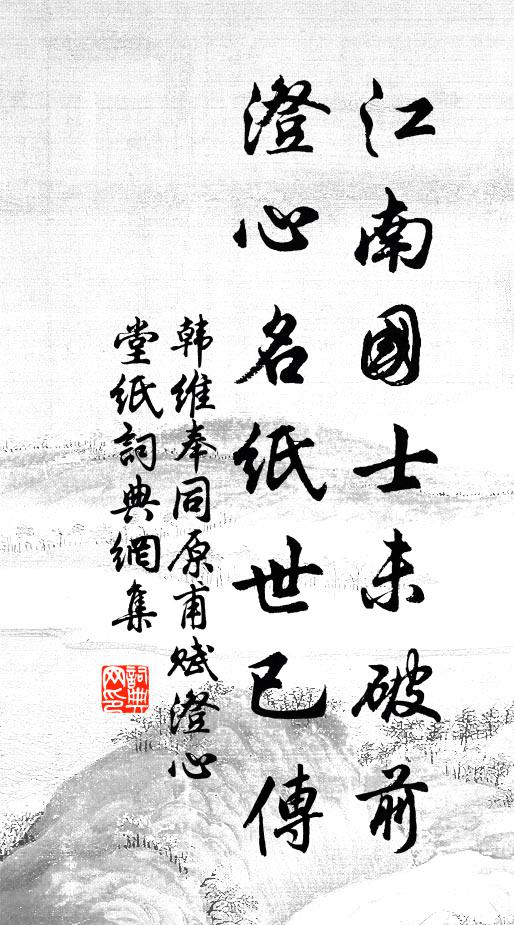 江南國士未破前
澄心名紙世已傳
韩维奉同原甫赋澄心
堂纸詞典網集
詞典网印